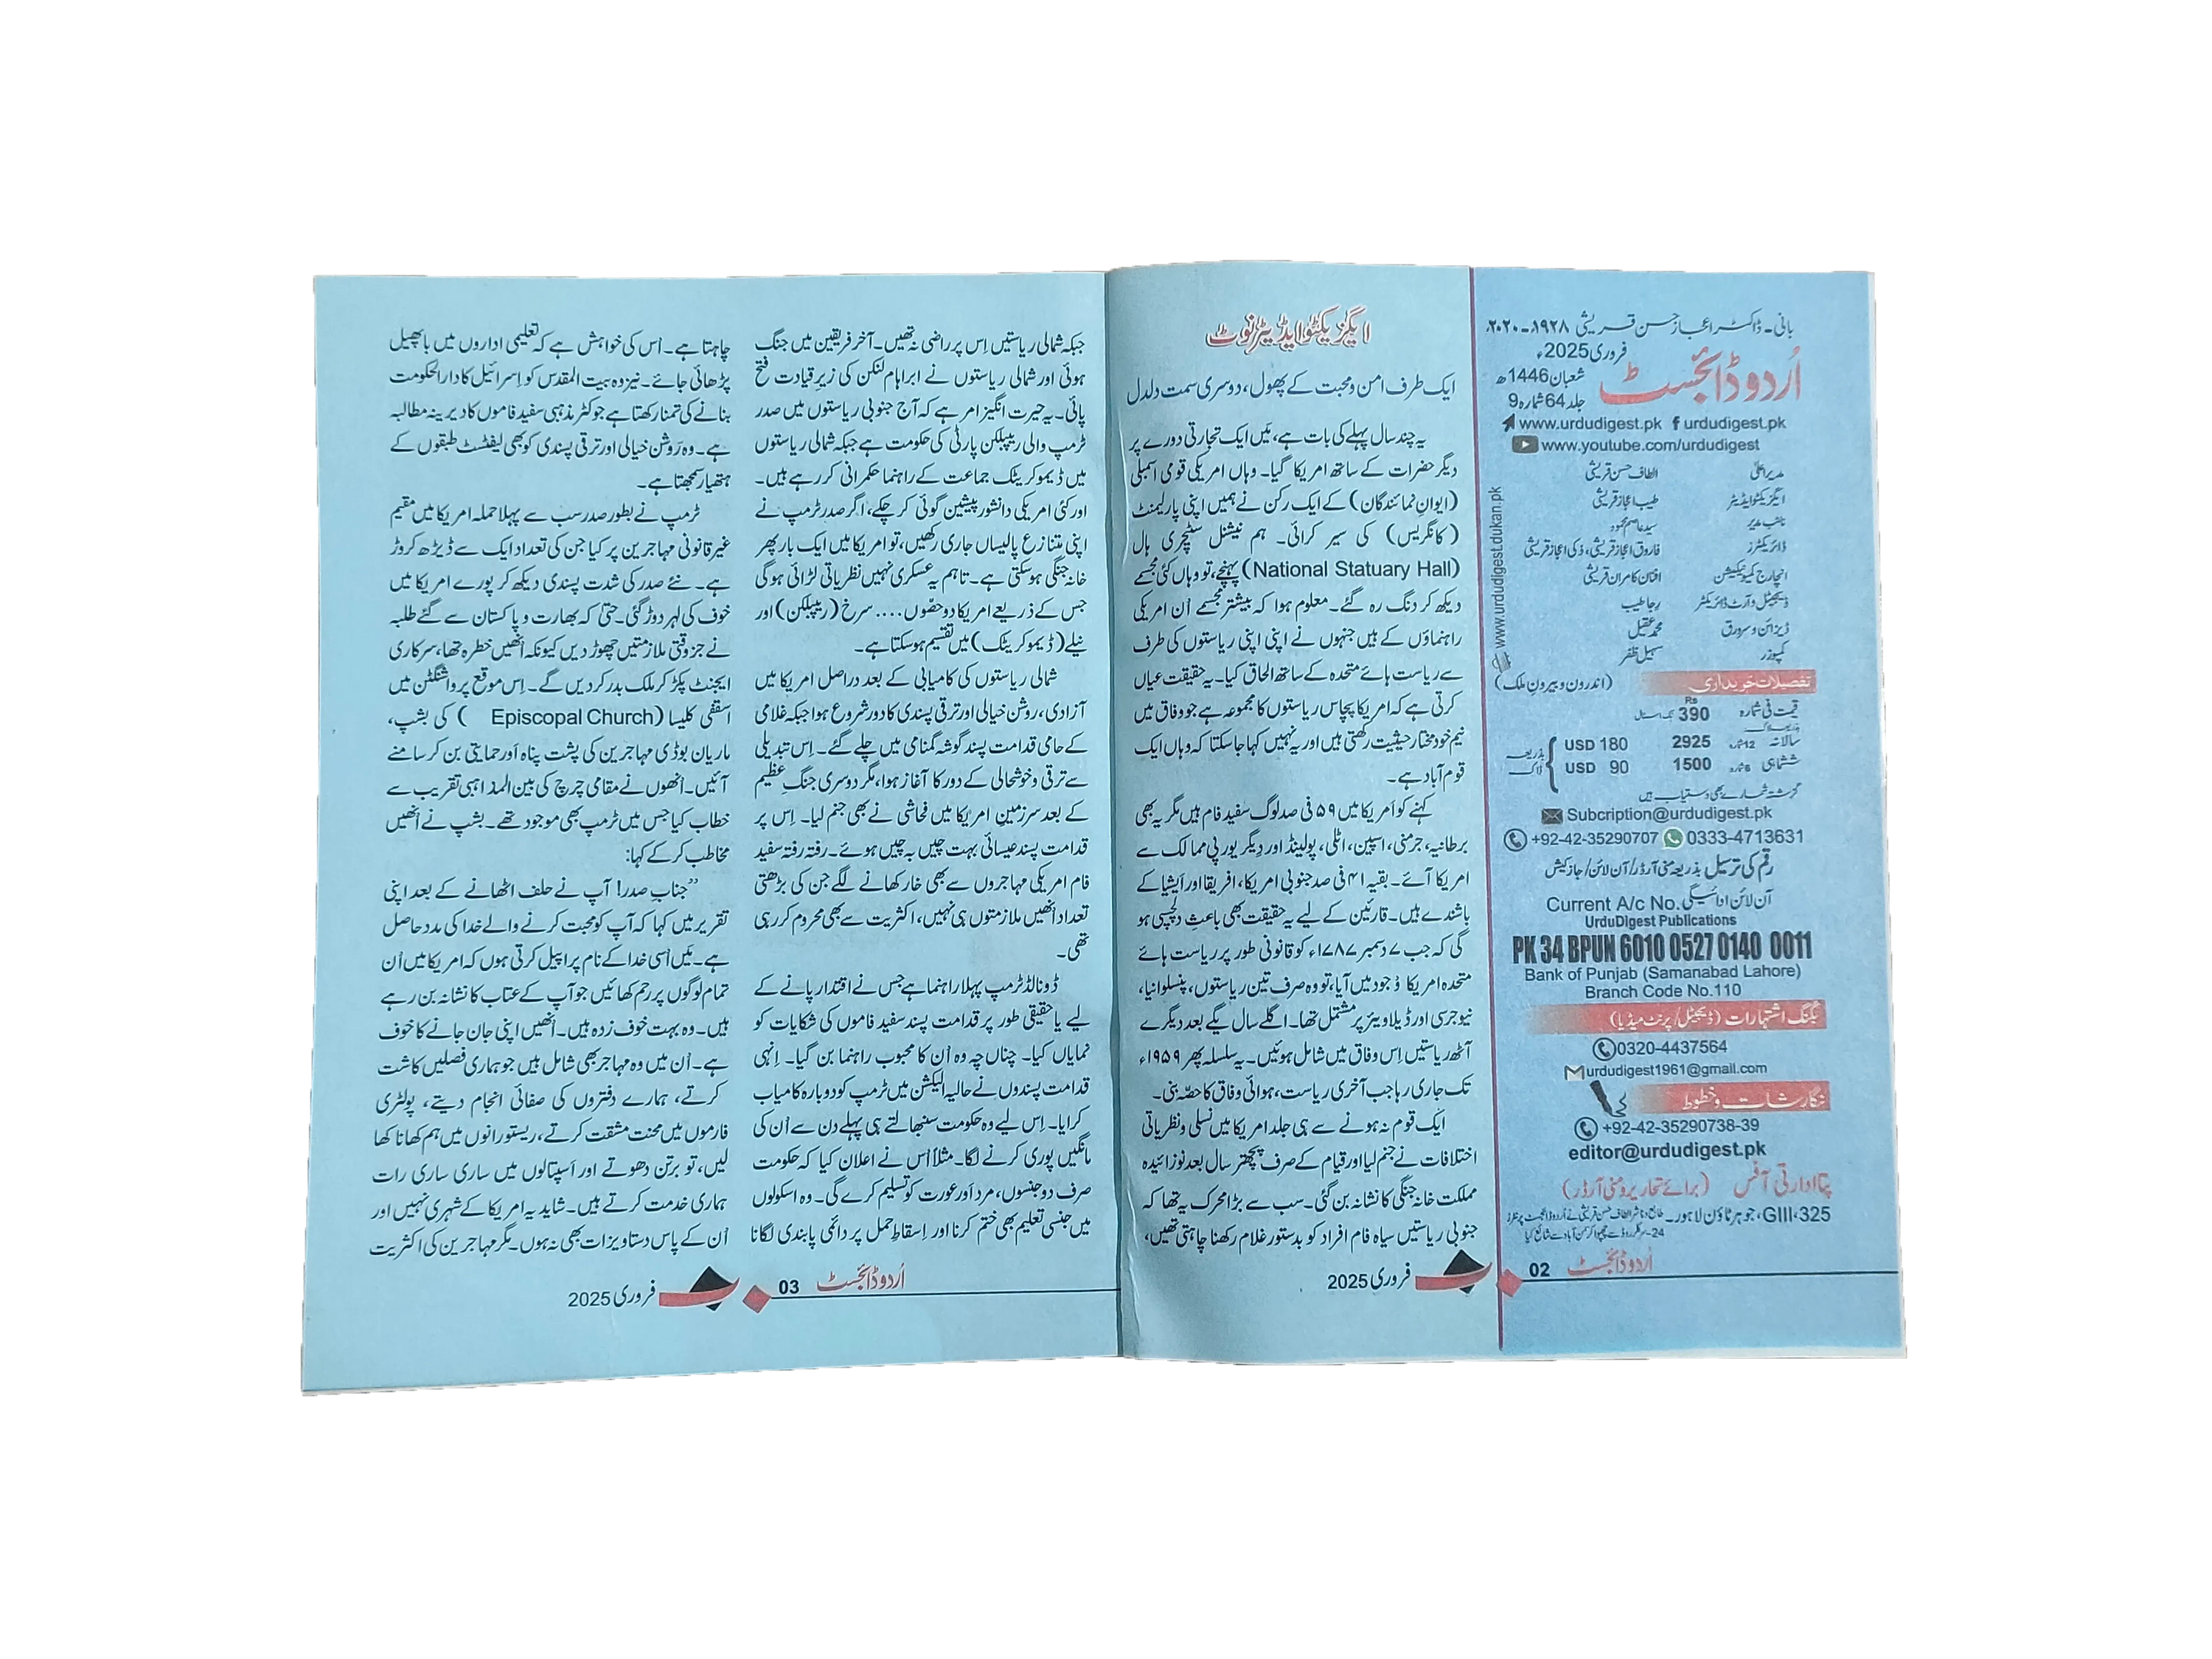 بانی۔ ڈاکٹر اعجاز حسن قریشی ۱۹۲۸۔۲۰۲۰ء
اُردو ڈائجسٹ
فروری 2025ء
شعبان 1446ھ
جلد 64 شمارہ 9
www.urdudigest.pk urdudigest.pk
www.youtube.com/urdudigest
مدیر اعلیٰ الطاف حسن قریشی
ایگزیکٹو ایڈیٹر طیب اعجاز قریشی
نائب مدیر سید عاصم محمود
ڈائریکٹرز فاروق اعجاز قریشی، ذکی اعجاز قریشی
انچارج کمیونیکیشن افنان کامران قریشی
ڈیجیٹل و آرٹ ڈائریکٹر رجا طیب
ڈیزائن و سرورق محمد عقیل
کمپوزر سہیل ظفر
www.urdudigest.dukan.pk
تفصیلات خریداری (اندرون و بیرون ملک)
قیمت فی شمارہ Rs 390 بک اسٹال
سالانہ 12 شمارہ 2925 USD 180
ششماہی 6 شمارہ 1500 USD 90
بذریعہ ڈاک
گزشتہ شمارے بھی دستیاب ہیں
Subcription@urdudigest.pk
+92-42-35290707 0333-4713631
رقم کی ترسیل بذریعہ منی آرڈر/آن لائن/جاز کیش
آن لائن ادائیگی Current A/c No.
UrduDigest Publications
PK 34 BPUN 6010 0527 0140 0011
Bank of Punjab (Samanabad Lahore)
Branch Code No.110
بکنگ اشتہارات (ڈیجیٹل/پرنٹ میڈیا)
0320-4437564
urdudigest1961@gmail.com
نگارشات و خطوط
+92-42-35290738-39
editor@urdudigest.pk
پتا ادارتی آفس (برائے تحاریر و منی آرڈر)
325،GIII، جوہر ٹاؤن لاہور۔ طابع و ناشر الطاف حسن قریشی نے اُردو ڈائجسٹ پرنٹرز
24-سرکلر روڈ سے چھپوا کر سمن آباد سے شائع کیا
اُردو ڈائجسٹ 02
فروری 2025
ایگزیکٹو ایڈیٹر نوٹ
ایک طرف امن و محبت کے پھول، دوسری سمت دلدل
یہ چند سال پہلے کی بات ہے، میں ایک تجارتی دورے پر
دیگر حضرات کے ساتھ امریکا گیا۔ وہاں امریکی قومی اسمبلی
(ایوانِ نمائندگان) کے ایک رکن نے ہمیں اپنی پارلیمنٹ
(کانگریس) کی سیر کرائی۔ ہم نیشنل سٹچری ہال
(National Statuary Hall) پہنچے، تو وہاں کئی مجسمے
دیکھ کر دنگ رہ گئے۔ معلوم ہوا کہ بیشتر مجسمے اُن امریکی
راہنماؤں کے ہیں جنہوں نے اپنی اپنی ریاستوں کی طرف
سے ریاست ہائے متحدہ کے ساتھ الحاق کیا۔ یہ حقیقت عیاں
کرتی ہے کہ امریکا پچاس ریاستوں کا مجموعہ ہے جو وفاق میں
نیم خود مختار حیثیت رکھتی ہیں اور یہ نہیں کہا جا سکتا کہ وہاں ایک
قوم آباد ہے۔
کہنے کو امریکا میں ۵۹ فی صد لوگ سفید فام ہیں مگر یہ بھی
برطانیہ، جرمنی، اسپین، اٹلی، پولینڈ اور دیگر یورپی ممالک سے
امریکا آئے۔ بقیہ ۴۱ فی صد جنوبی امریکا، افریقا اور ایشیا کے
باشندے ہیں۔ قارئین کے لیے یہ حقیقت بھی باعثِ دلچسپی ہو
گی کہ جب ۷ دسمبر ۱۷۸۷ء کو قانونی طور پر ریاست ہائے
متحدہ امریکا وُجود میں آیا، تو وہ صرف تین ریاستوں، پنسلوانیا،
نیو جرسی اور ڈیلاویئر پر مشتمل تھا۔ اگلے سال یکے بعد دیگرے
آٹھ ریاستیں اِس وفاق میں شامل ہوئیں۔ یہ سلسلہ پھر ۱۹۵۹ء
تک جاری رہا جب آخری ریاست، ہوائی وفاق کا حصّہ بنی۔
ایک قوم نہ ہونے سے ہی جلد امریکا میں نسلی و نظریاتی
اختلافات نے جنم لیا اور قیام کے صرف پچھتر سال بعد نوزائیدہ
مملکت خانہ جنگی کا نشانہ بن گئی۔ سب سے بڑا محرک یہ تھا کہ
جنوبی ریاستیں سیاہ فام افراد کو بدستور غلام رکھنا چاہتی تھیں،
جبکہ شمالی ریاستیں اِس پر راضی نہ تھیں۔ آخر فریقین میں جنگ
ہوئی اور شمالی ریاستوں نے ابراہام لنکن کی زیرِ قیادت فتح
پائی۔ یہ حیرت انگیز امر ہے کہ آج جنوبی ریاستوں میں صدر
ٹرمپ والی ریپبلکن پارٹی کی حکومت ہے جبکہ شمالی ریاستوں
میں ڈیموکریٹک جماعت کے راہنما حکمرانی کر رہے ہیں۔
اور کئی امریکی دانشور پیشین گوئی کر چکے، اگر صدر ٹرمپ نے
اپنی متنازع پالیساں جاری رکھیں، تو امریکا میں ایک بار پھر
خانہ جنگی ہو سکتی ہے۔ تاہم یہ عسکری نہیں نظریاتی لڑائی ہو گی
جس کے ذریعے امریکا دو حصّوں .... سرخ (ریپبلکن) اور
نیلے (ڈیموکریٹک) میں تقسیم ہو سکتا ہے۔
شمالی ریاستوں کی کامیابی کے بعد دراصل امریکا میں
آزادی، روشن خیالی اور ترقی پسندی کا دور شروع ہوا جبکہ غلامی
کے حامی قدامت پسند گوشہ گمنامی میں چلے گئے۔ اِس تبدیلی
سے ترقی و خوشحالی کے دور کا آغاز ہوا، مگر دوسری جنگِ عظیم
کے بعد سرزمینِ امریکا میں فحاشی نے بھی جنم لیا۔ اِس پر
قدامت پسند عیسائی بہت چیں بہ چیں ہوئے۔ رفتہ رفتہ سفید
فام امریکی مہاجروں سے بھی خار کھانے لگے جن کی بڑھتی
تعداد اُنھیں ملازمتوں ہی نہیں، اکثریت سے بھی محروم کر رہی
تھی۔
ڈونالڈ ٹرمپ پہلا راہنما ہے جس نے اقتدار پانے کے
لیے یا حقیقی طور پر قدامت پسند سفید فاموں کی شکایات کو
نمایاں کیا۔ چناں چہ وہ اُن کا محبوب راہنما بن گیا۔ اِنہی
قدامت پسندوں نے حالیہ الیکشن میں ٹرمپ کو دوبارہ کامیاب
کرایا۔ اِس لیے وہ حکومت سنبھالتے ہی پہلے دن سے اُن کی
مانگیں پوری کرنے لگا۔ مثلاً اُس نے اعلان کیا کہ حکومت
صرف دو جنسوں، مرد اَور عورت کو تسلیم کرے گی۔ وہ اسکولوں
میں جنسی تعلیم بھی ختم کرنا اور اِسقاطِ حمل پر دائمی پابندی لگانا
چاہتا ہے۔ اُس کی خواہش ہے کہ تعلیمی اداروں میں بائیبل
پڑھائی جائے۔ نیز وہ بیت المقدس کو اِسرائیل کا دارالحکومت
بنانے کی تمنا رکھتا ہے جو کٹر مذہبی سفید فاموں کا دیرینہ مطالبہ
ہے۔ وہ رَوشن خیالی اور ترقی پسندی کو بھی لیفٹسٹ طبقوں کے
ہتھیار سمجھتا ہے۔
ٹرمپ نے بطور صدر سب سے پہلا حملہ امریکا میں مقیم
غیر قانونی مہاجرین پر کیا جن کی تعداد ایک سے ڈیڑھ کروڑ
ہے۔ نئے صدر کی شدت پسندی دیکھ کر پورے امریکا میں
خوف کی لہر دوڑ گئی۔ حتیٰ کہ بھارت و پاکستان سے گئے طلبہ
نے جز وقتی ملازمتیں چھوڑ دیں کیونکہ اُنھیں خطرہ تھا، سرکاری
ایجنٹ پکڑ کر ملک بدر کر دیں گے۔ اِس موقع پر واشنگٹن میں
اسقفی کلیسا (Episcopal Church) کی بشپ،
ماریان بوڈی مہاجرین کی پشت پناہ اَور حمایتی بن کر سامنے
آئیں۔ اُنھوں نے مقامی چرچ کی بین المذاہبی تقریب سے
خطاب کیا جس میں ٹرمپ بھی موجود تھے۔ بشپ نے اُنھیں
مخاطب کر کے کہا:
”جنابِ صدر! آپ نے حلف اٹھانے کے بعد اپنی
تقریر میں کہا کہ آپ کو محبت کرنے والے خدا کی مدد حاصل
ہے۔ میں اُسی خدا کے نام پر اپیل کرتی ہوں کہ امریکا میں اُن
تمام لوگوں پر رحم کھائیں جو آپ کے عتاب کا نشانہ بن رہے
ہیں۔ وہ بہت خوف زدہ ہیں۔ اُنھیں اپنی جان جانے کا خوف
ہے۔ اُن میں وہ مہاجر بھی شامل ہیں جو ہماری فصلیں کاشت
کرتے، ہمارے دفتروں کی صفائی انجام دیتے، پولٹری
فارموں میں محنت مشقت کرتے، ریستورانوں میں ہم کھانا کھا
لیں، تو برتن دھوتے اور اَسپتالوں میں ساری ساری رات
ہماری خدمت کرتے ہیں۔ شاید یہ امریکا کے شہری نہیں اور
اُن کے پاس دستاویزات بھی نہ ہوں۔ مگر مہاجرین کی اکثریت
اُردو ڈائجسٹ 03
فروری 2025